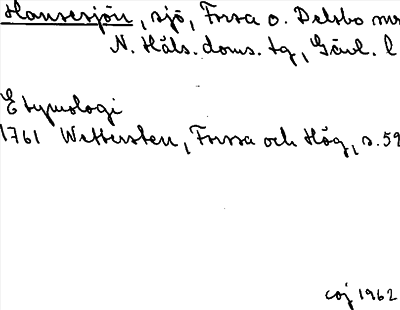 Hansesjön, sjö, Forsa o. Delsbo snr
N. Häls. doms. tg, Gävl. l
Etymologi
1761 Wettersten, Forssa och Hög, s. 59
coj 1962